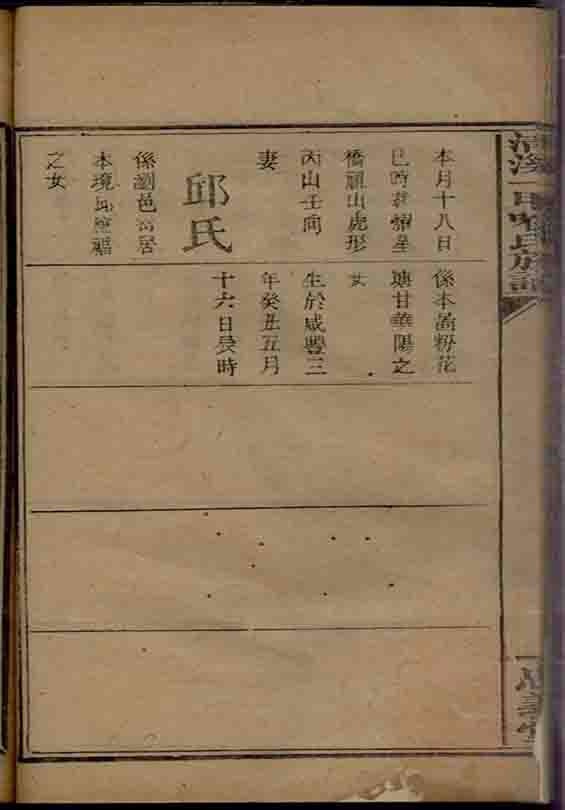 清溪
氏族
義堂
本月十八日
巳時葬星
橋祖山虎形
丙山壬向
妻
邱氏
係瀏邑居
本境福
之女
係本粉花
塘甘華陽之
女
生於咸豐三
年癸丑五月
十六日辰時